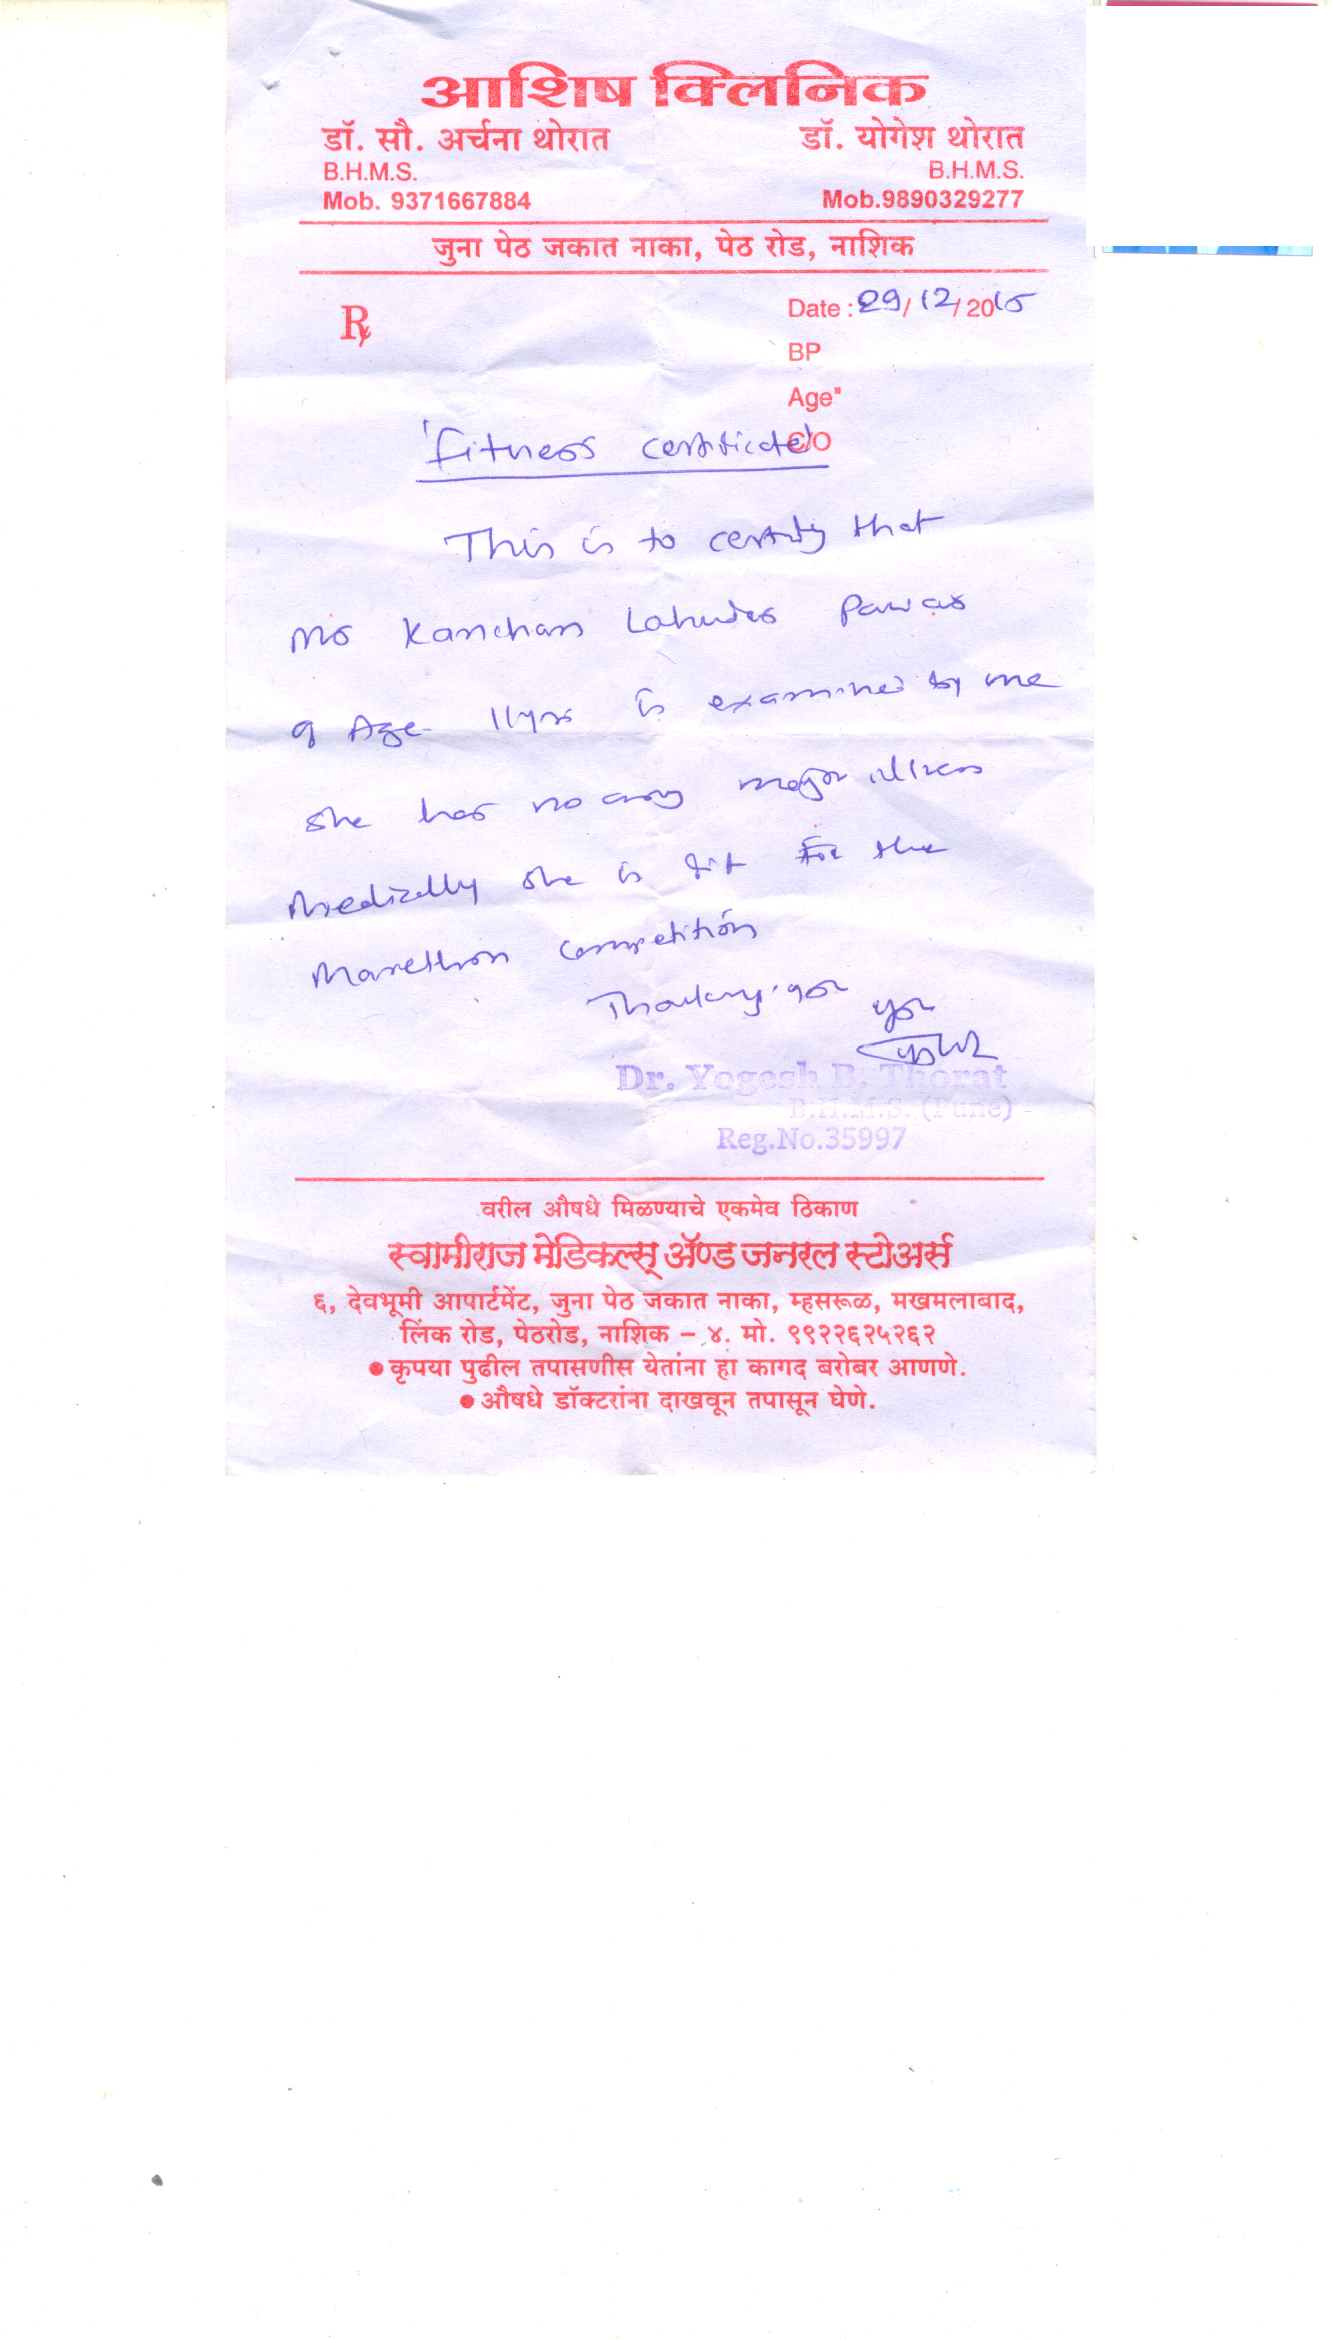 आशिष क्लिनिक
डॉ. सौ. अर्चना थोरात डॉ. योगेश थोरात
B.H.M.S. B.H.M.S.
Mob. 9371667884 Mob.9890329277
जुना पेठ जकात नाका, पेठ रोड, नाशिक
Rx Date : 29/12/2015
BP
Age"
C/O
'Fitness certificate'
This is to certify that
Ms Kanchan Pawar
of Age 11yrs is examined by me
she has no any major illness
Medically she is fit for the
Marethon competition
Thanking you
Dr. Yogesh B. Thorat
B.H.M.S. (Pune)
Reg.No.35997
वरील औषधे मिळण्याचे एकमेव ठिकाण
स्वामीराज मेडिकल्स् ॲण्ड जनरल स्टोअर्स
६, देवभूमी आपार्टमेंट, जुना पेठ जकात नाका, म्हसरूळ, मखमलाबाद,
लिंक रोड, पेठरोड, नाशिक – ४. मो. ९९२२६२५२६२
● कृपया पुढील तपासणीस येतांना हा कागद बरोबर आणणे.
● औषधे डॉक्टरांना दाखवून तपासून घेणे.